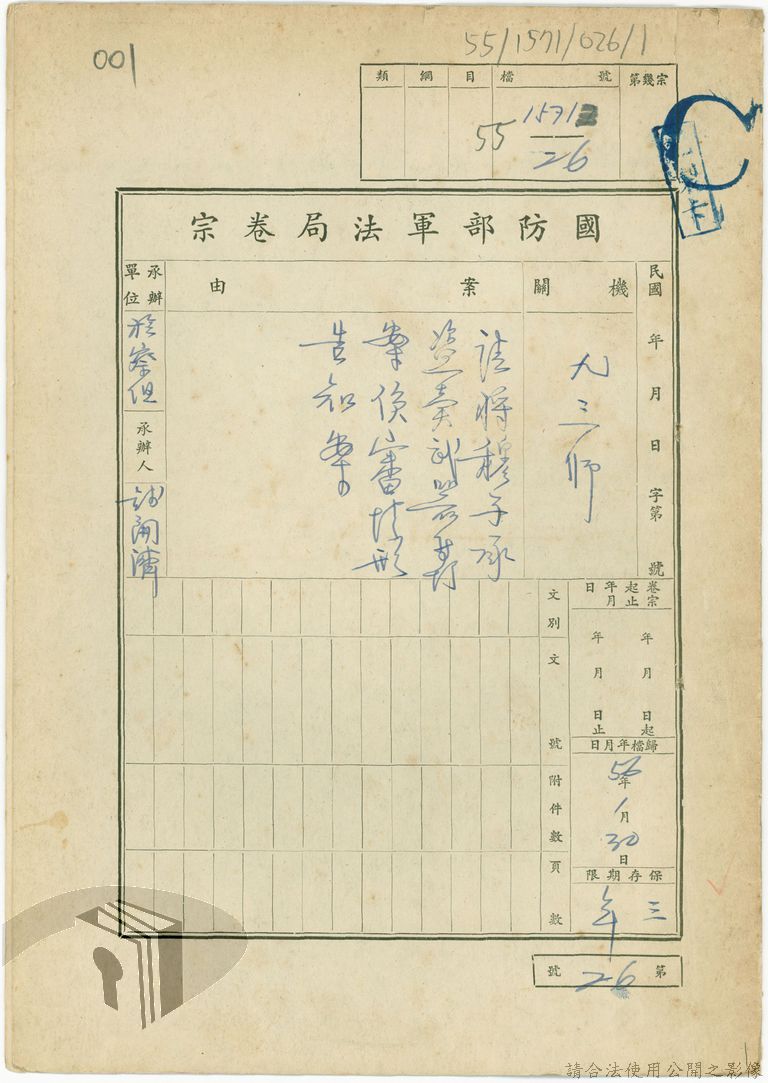 001
55/1571/026/1
類 綱 目 檔 號 第幾宗
55 1571
26
C
國防部軍法局卷宗
民國 年 月 日 字第 號
機關
九三師
案由
請將穆子承
盜賣武器等
案偵審情形
告知案
承辦單位
檢察組
承辦人
文別
文號
附件數
頁數
卷宗起止年月日
年 月 日 起
年 月 日 止
歸檔年月日
56年1月30日
保存期限
三年
第26號
請合法使用公開之影像